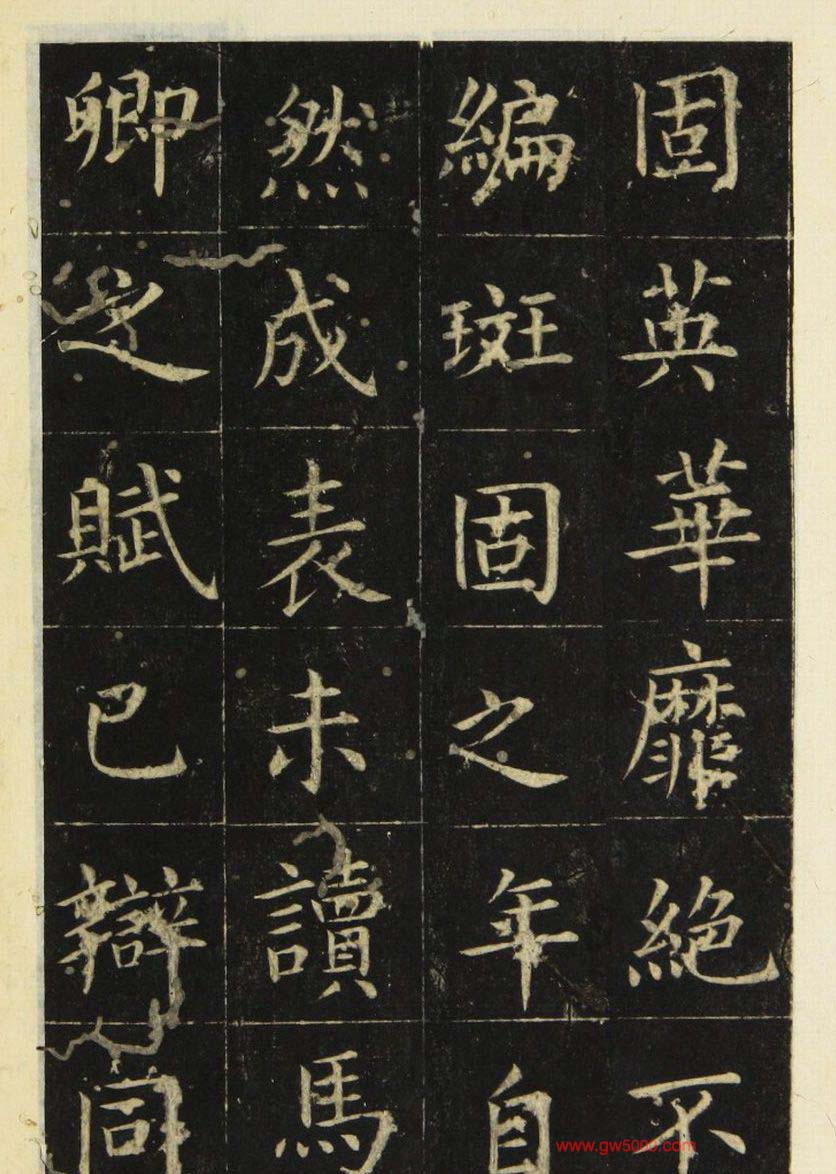 固英華靡絕不
編斑固之年自
然成表未讀馬
卿之賦已辯同
www.gw5000.com